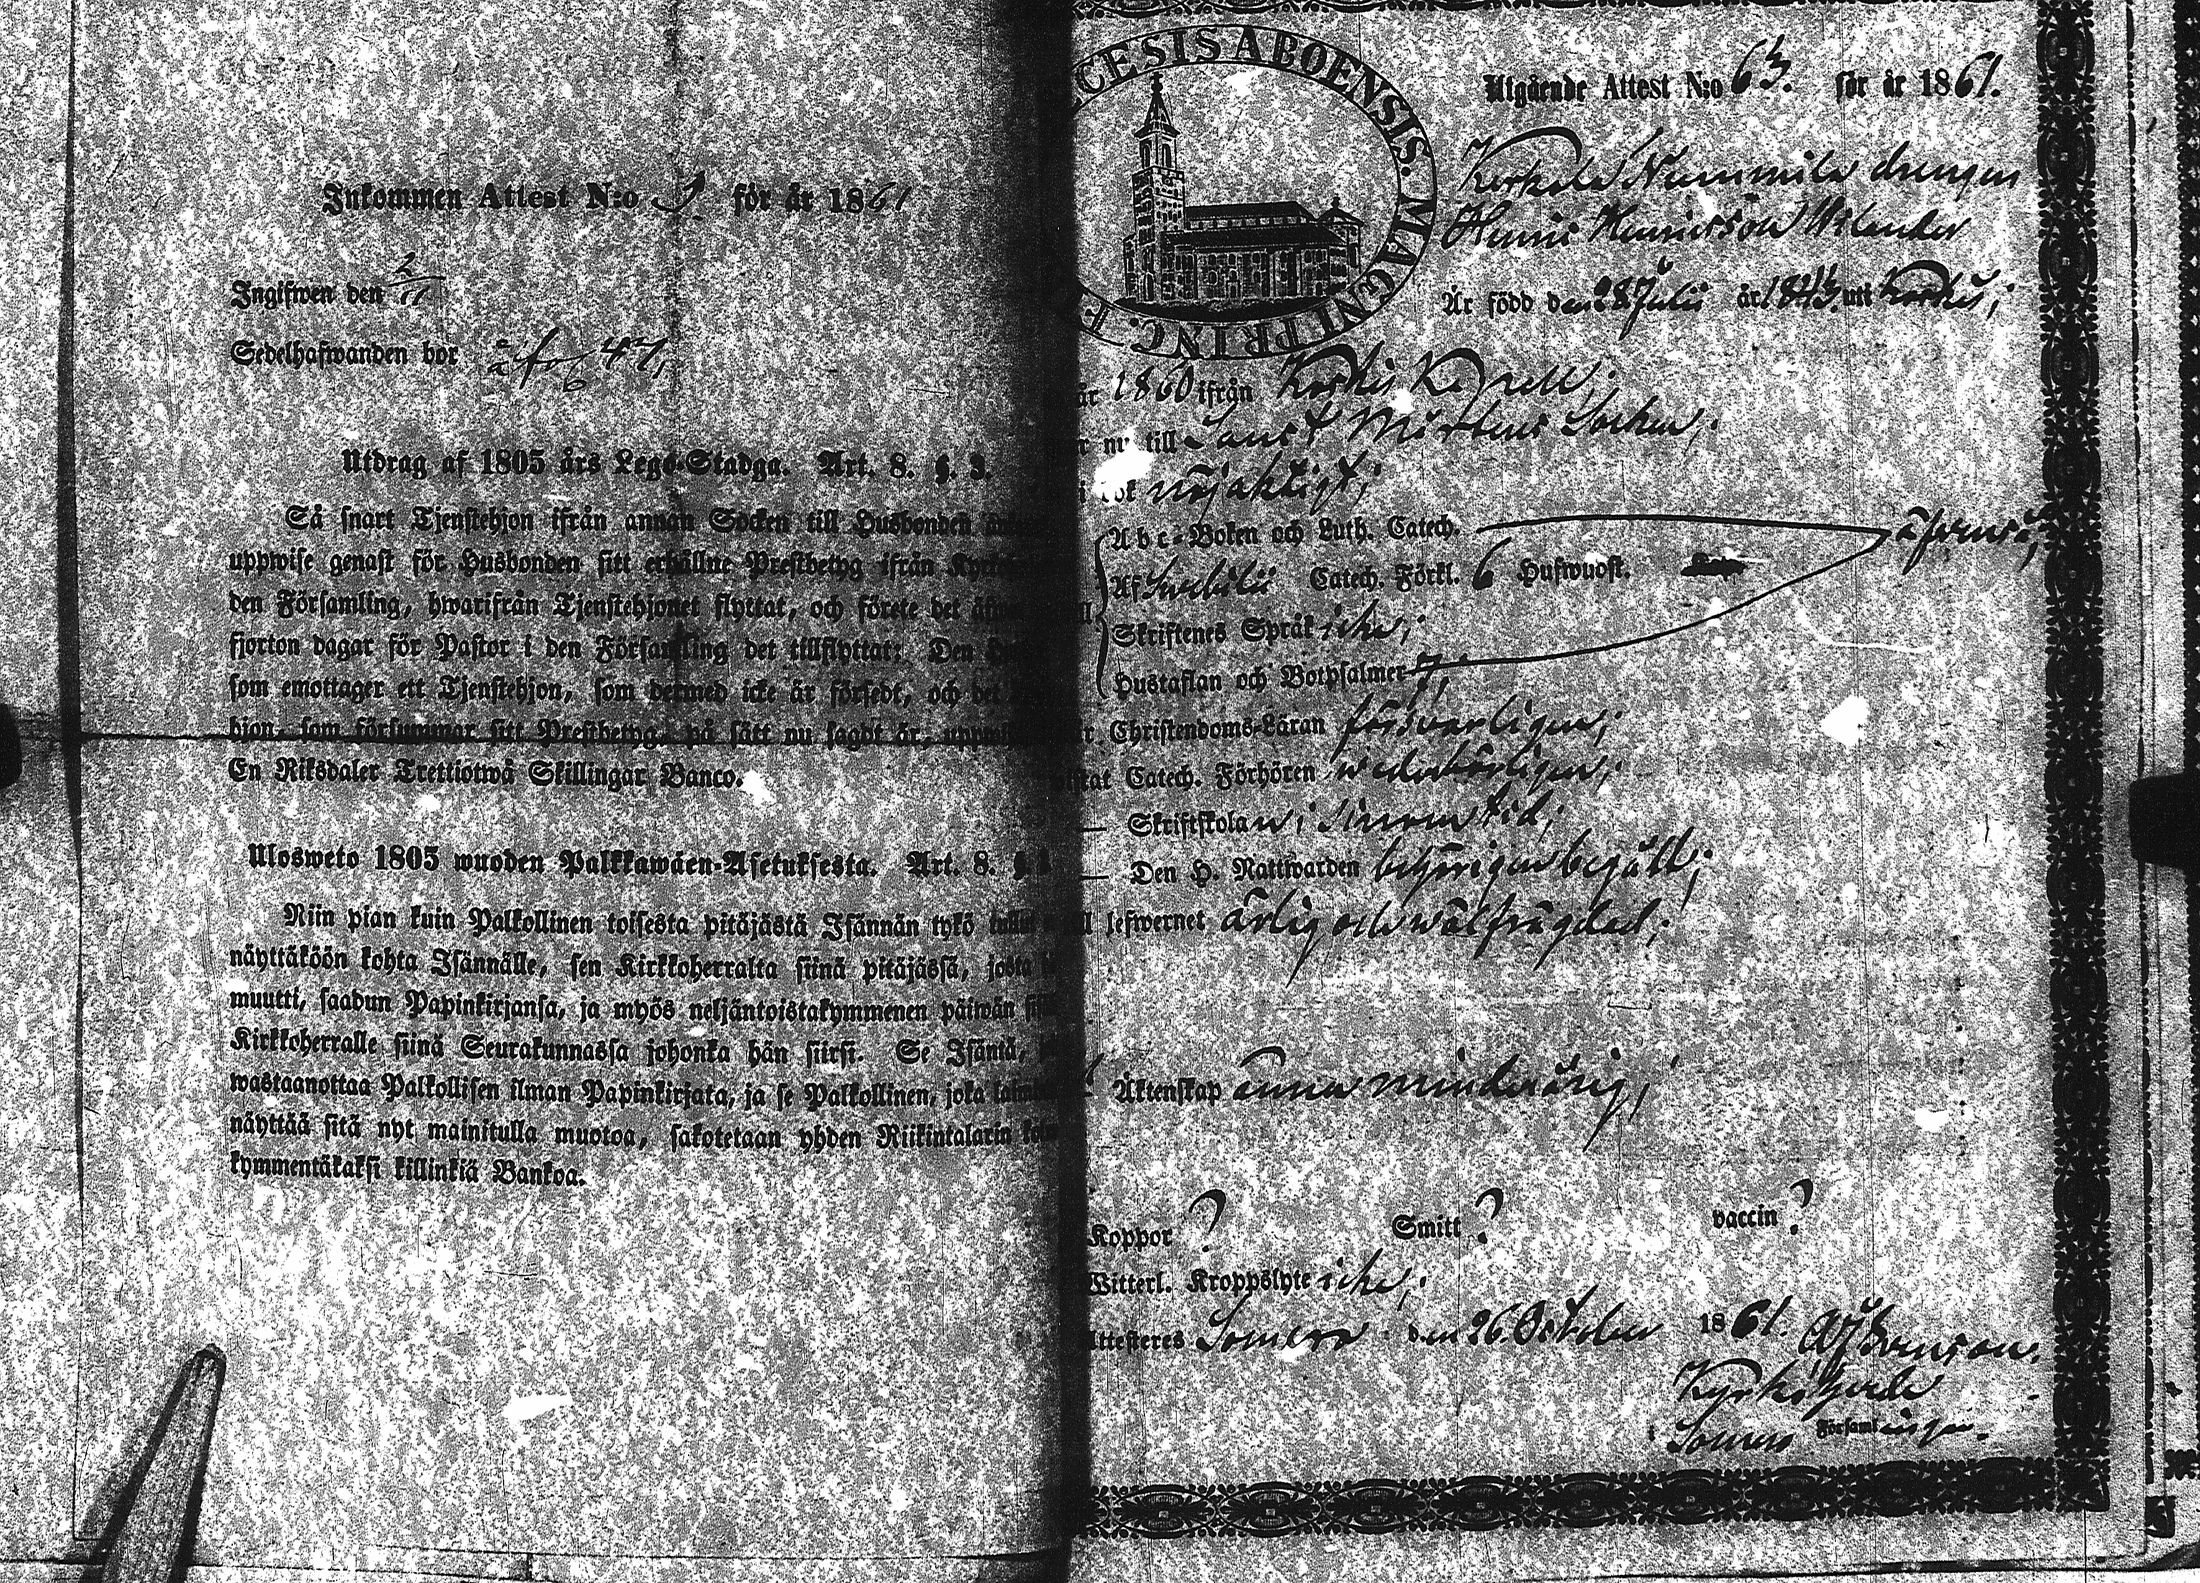 Inkommen Attest N:o 9. för år 1861
Ingifwen den 2/11
Sedelhafwanden bor å fol 47,
Utdrag af 1805 års Lego-Stadga. Art. 8. §. 3.
Så snart Tjenstehjon ifrån annan Socken till Husbonden
uppwise genast för Husbonden sitt erhållne Prestbetyg ifrån
den Församling, hwarifrån Tjenstehjonet flyttat, och förete det
fjorton dagar för Pastor i den Församling det tillflyttat: Den
som emottager ett Tjenstehjon, som dermed icke är försedt, och det
hjon, som försummar sitt Prestbetyg, på sätt nu sagdt är,
En Riksdaler Trettiotwå Skillingar Banco.
Ulosweto 1805 wuoden Palkkawäen-Asetuksesta. Art. 8. §.
Niin pian kuin Palkollinen toisesta pitäjästä Isännän tykö
näyttäköön kohta Isännälle, sen Kirkkoherralta siinä pitäjässä, josta
muutti, saadun Papinkirjansa, ja myös neljäntoistakymmenen päiwän
Kirkkoherralle siinä Seurakunnassa johonka hän siirsi. Se Isäntä,
wastaanottaa Palkollisen ilman Papinkirjata, ja se Palkollinen, joka
näyttää sitä nyt mainitulla muotoa, sakotetaan yhden Riikintalarin
kymmentäkaksi killinkiä Bankoa.
CESIS ABOENSIS. MAGNI PRINC. F
Utgående Attest N:o 63. för år 1861.
Nummila drengen
Henric Henricsson
Är född den 28 Julii år 1843. uti Koskis;
år 1860 ifrån Koskis Kapell;
nu till Sanct Mårtens Socken;
i bok nöjaktigt;
Abc-Boken och Luth. Catech.
Af Catech. Förkl. 6 Huswuost.
Skriftenes Språk icke;
Hustaflan och Botpsalmer 7;
Christendoms-Läran försvarligen;
Catech. Förhören wederbörligen;
Skriftskolan i sinom tid;
Den H. Nattwarden behörigen begått;
lefwernet ärlig och wälfrägdad;
Äktenskap ännu minderårig;
Koppor ? Smitt ? vaccin ?
Witterl. Kroppslyte icke;
Attesteres Somero den 26 October 1861.
Kyrkoherde
i Somero Församlingen.